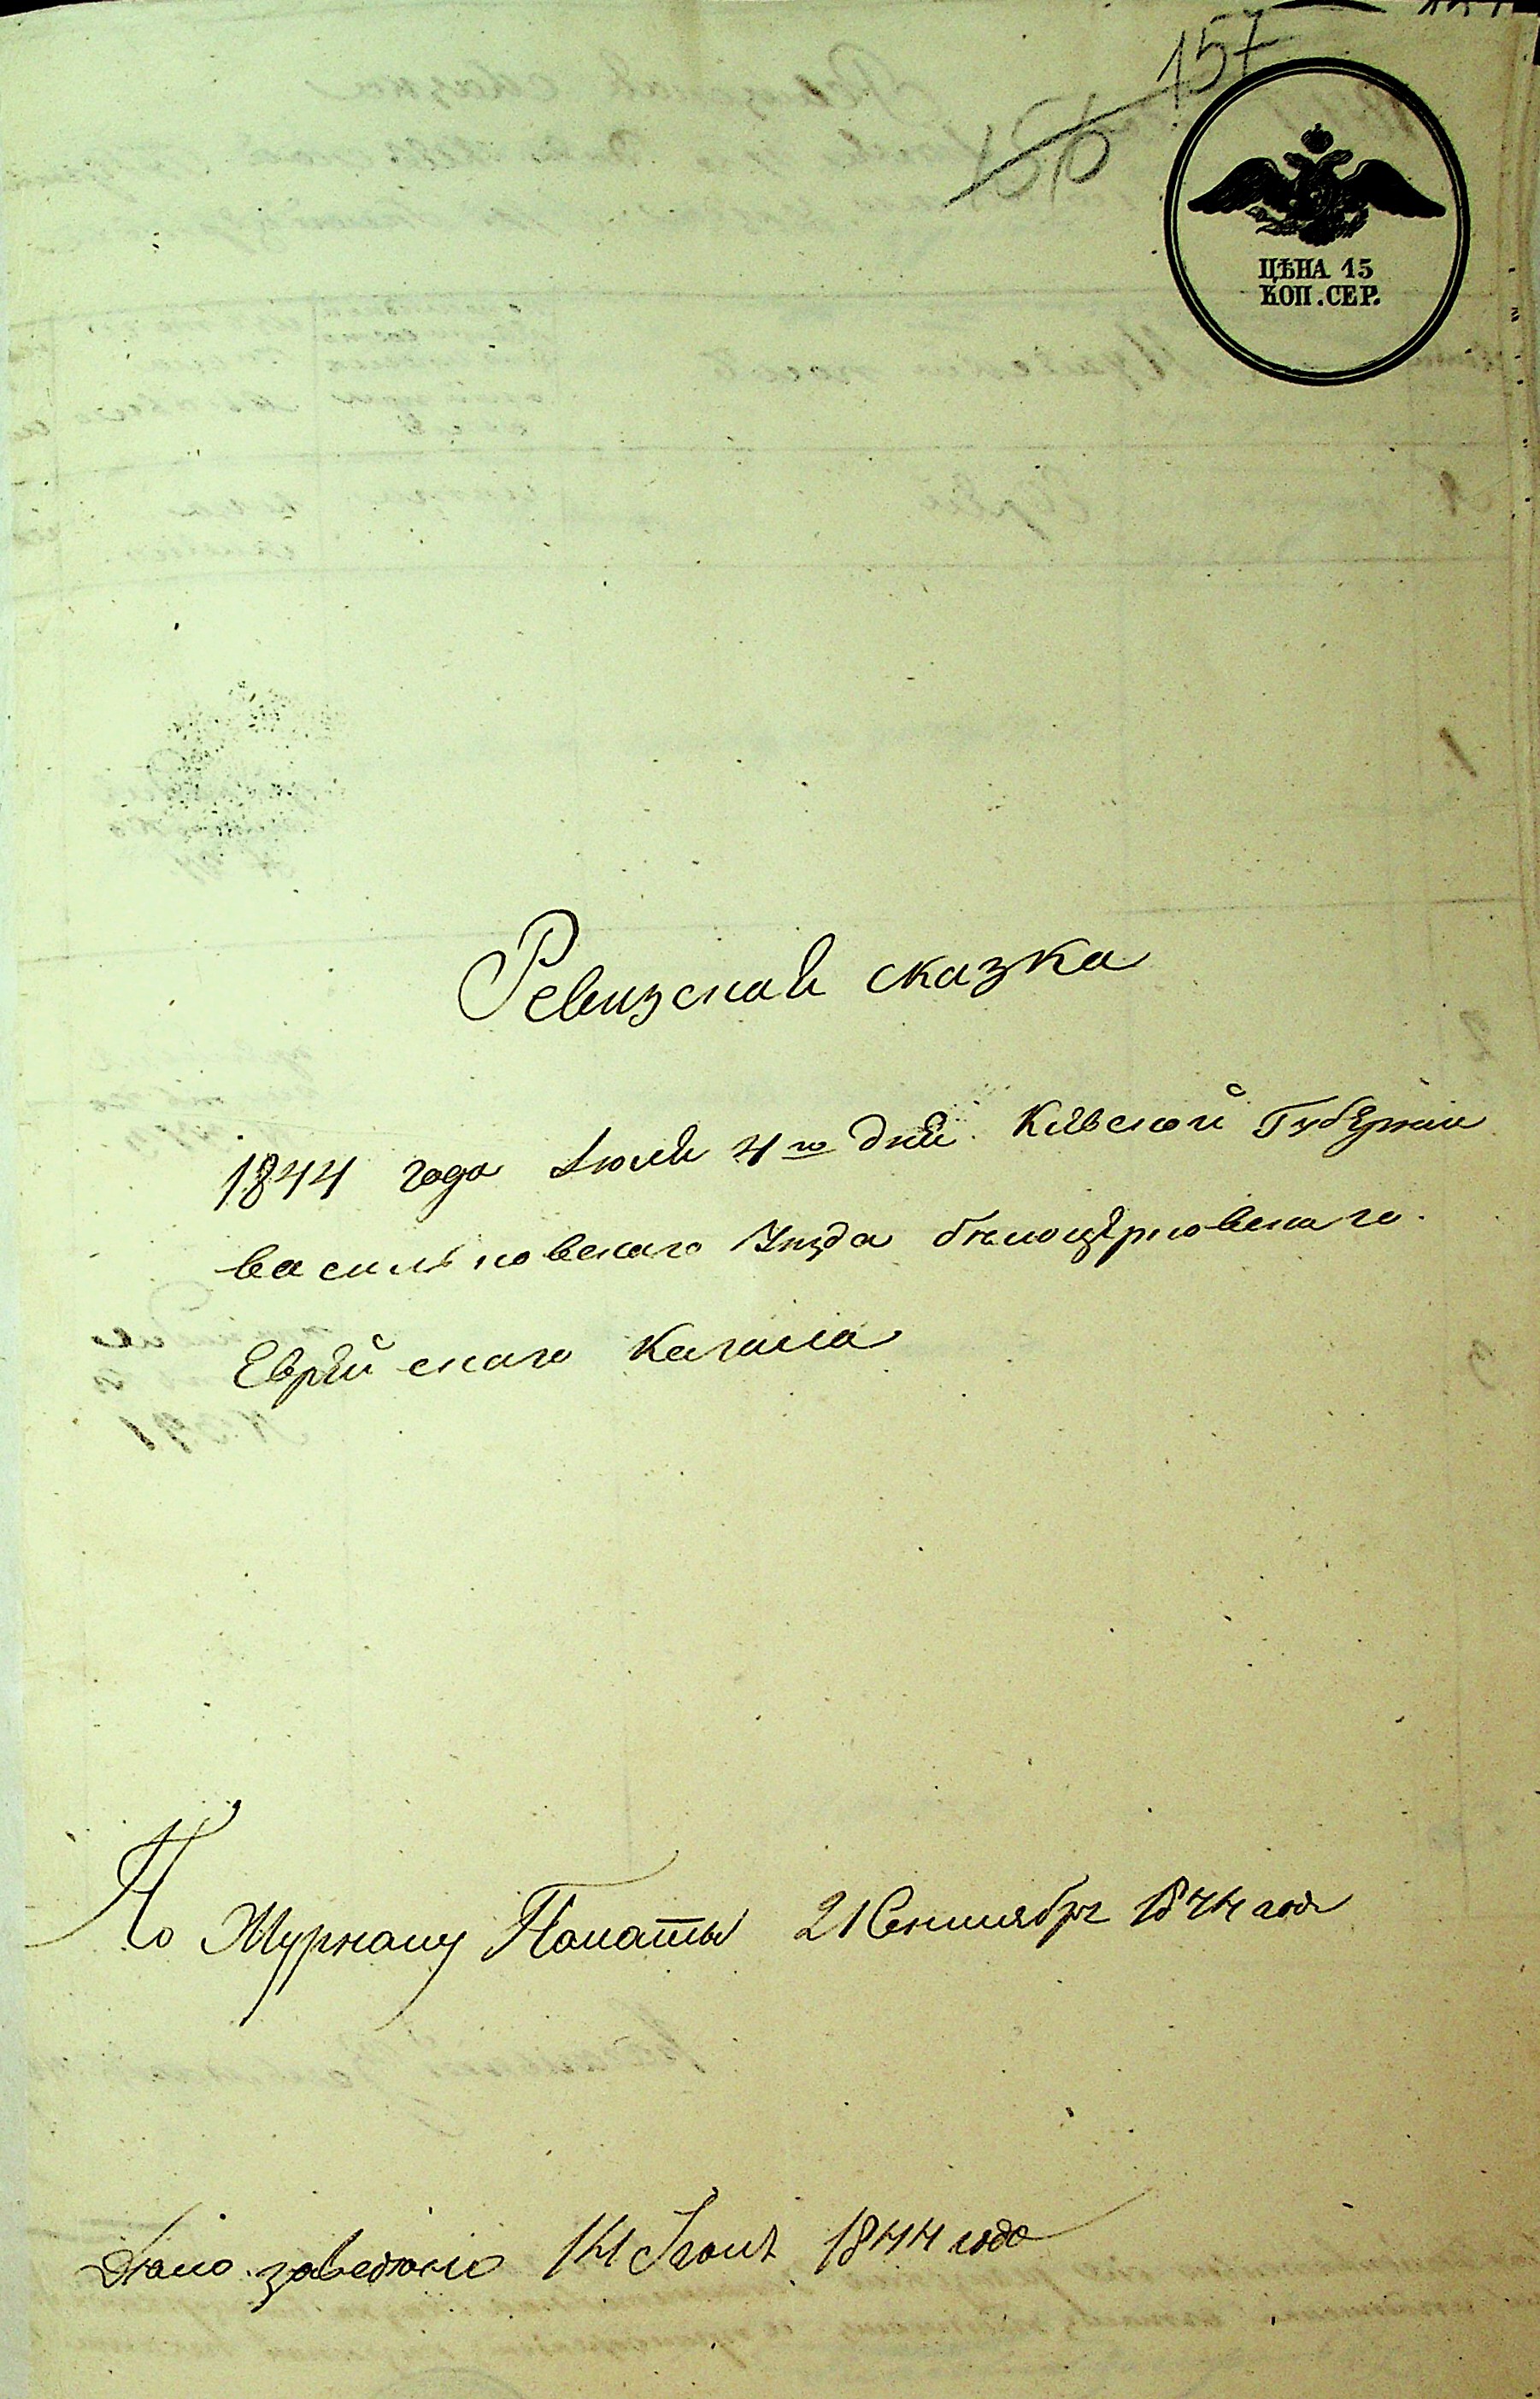 157
156
ЦѢНА 15
КОП. СЕР.
Ревизская сказка
1844 года Июля 4го дня. Кіевской Губерніи
васильковскаго Уезда бѣлоцерковскаго.
Еврейскаго Кагала
По Журналу Палаты 21 Сентября 1844 года
Дѣло заведено 14 Іюля 1844 года